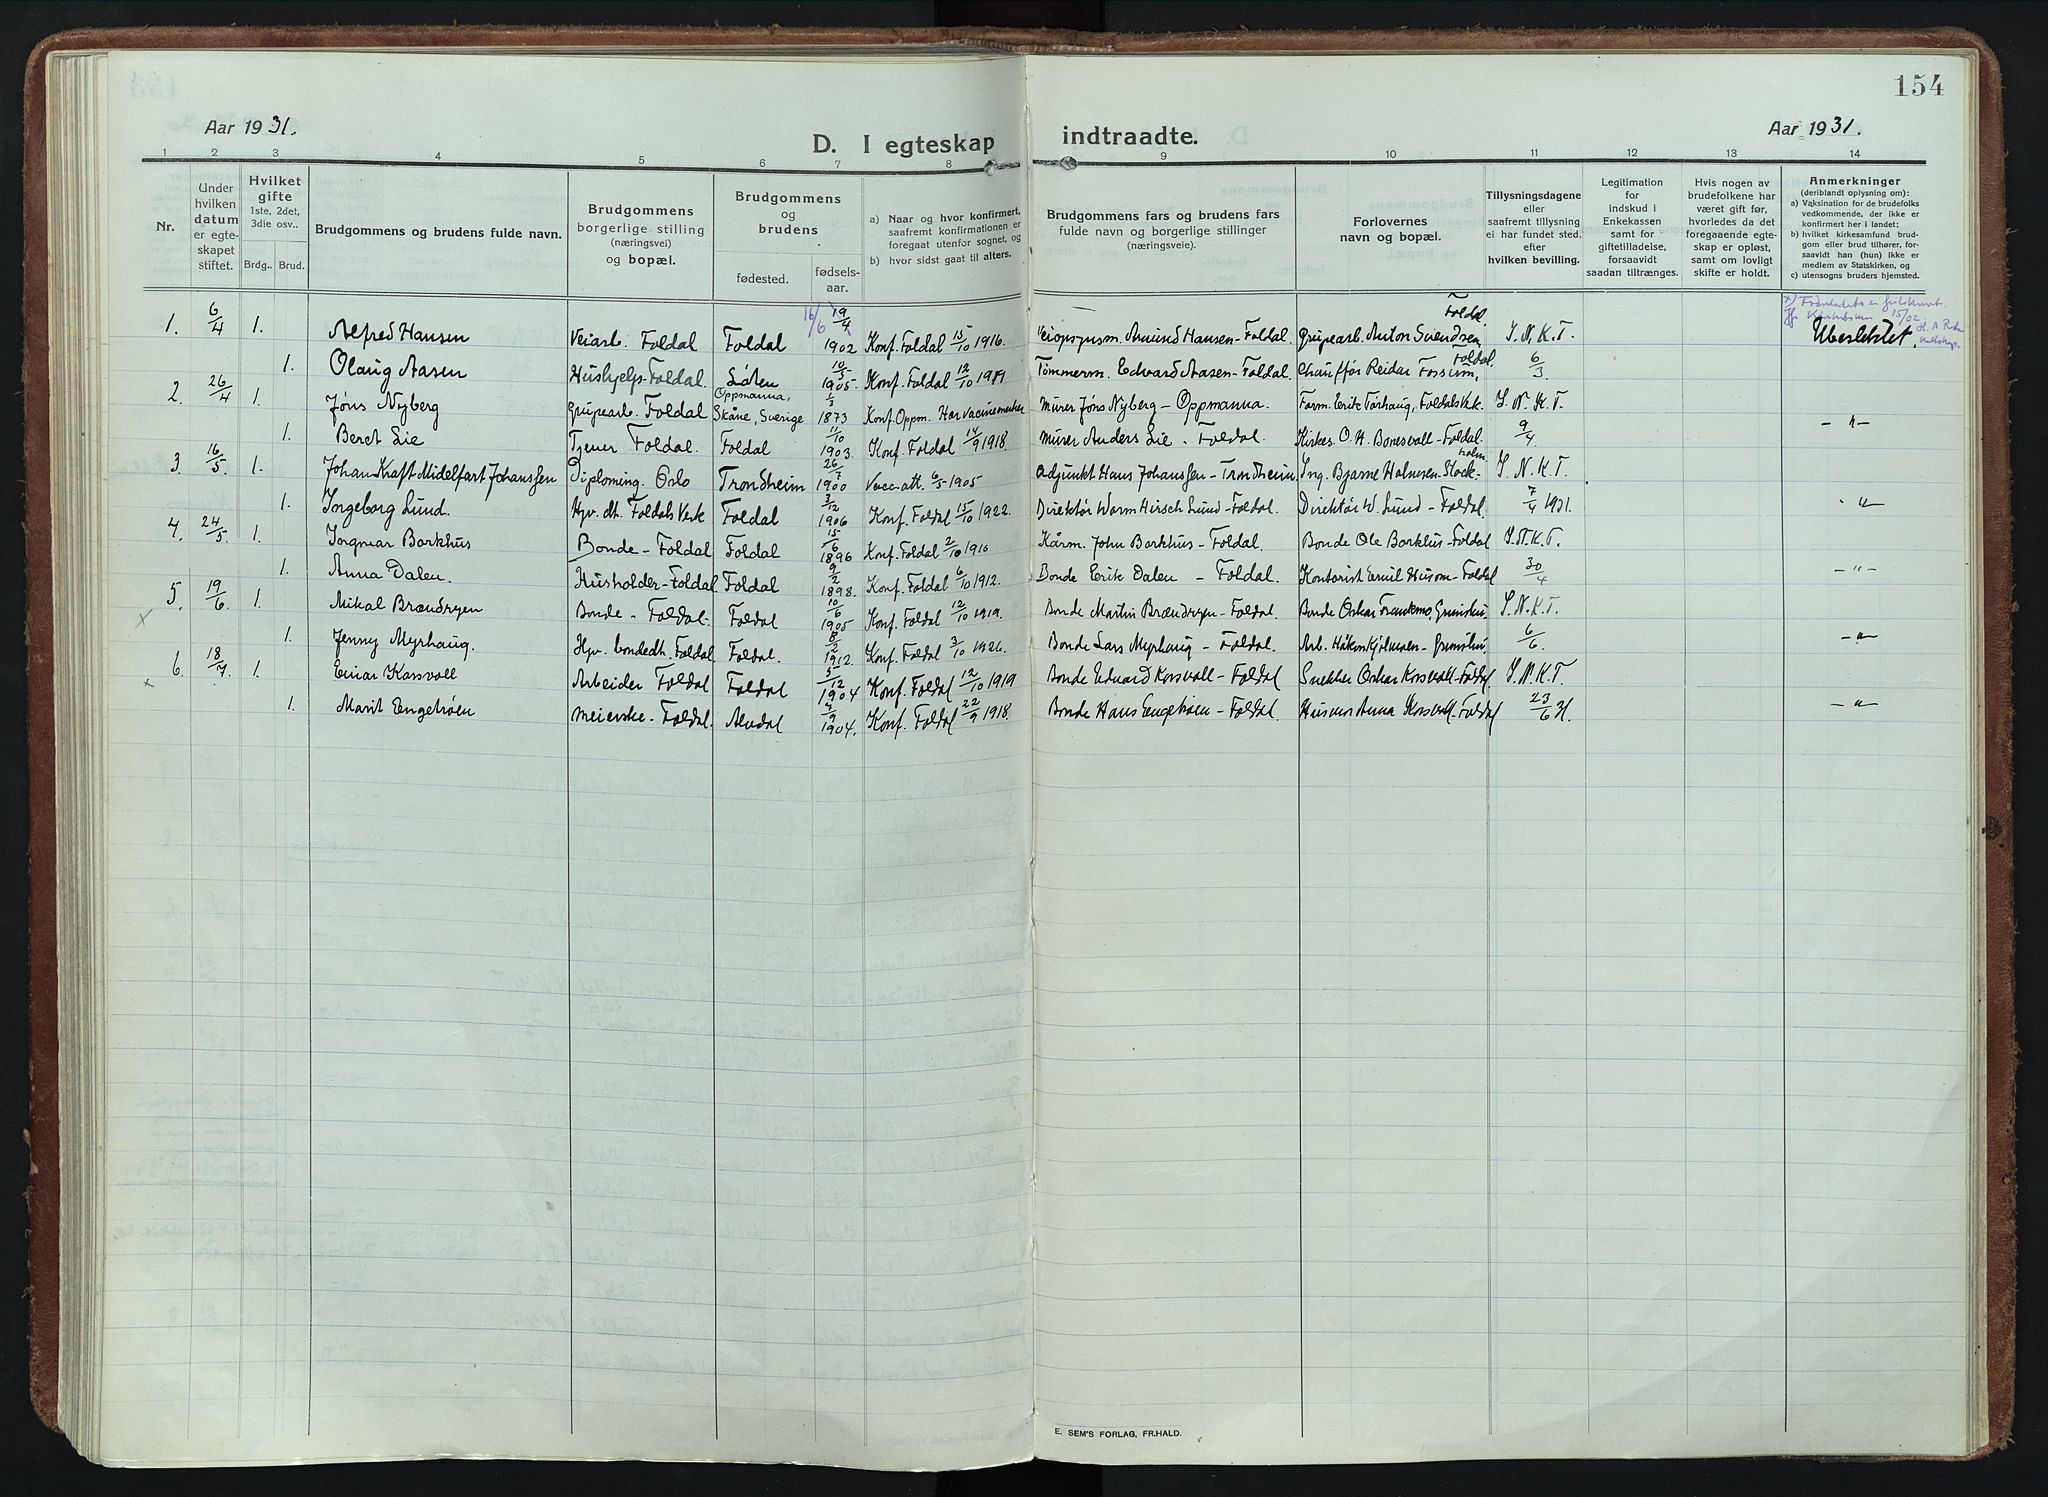 154
Aar 1931.
D. I egteskap indtraadte.
Aar 1931.
1 2 3 4 5 6 7 8 9 10 11 12 13 14
Nr.
Under hvilken datum er egteskapet stiftet.
Hvilket gifte 1ste, 2det, 3die osv..
Brdg.. Brud.
Brudgommens og brudens fulde navn.
Brudgommens borgerlige stilling (næringsvei) og bopæl.
Brudgommens og brudens
fødested. fødsels-aar.
a) Naar og hvor konfirmert, saafremt konfirmationen er foregaat utenfor sognet, og
b) hvor sidst gaat til alters.
Brudgommens fars og brudens fars fulde navn og borgerlige stillinger (næringsveie).
Forlovernes navn og bopæl.
Tillysningsdagene eller saafremt tillysning ei har fundet sted, efter hvilken bevilling.
Legitimation for indskud i Enkekassen samt for giftetilladelse, forsaavidt saadan tiltrænges.
Hvis nogen av brudefolkene har været gift før, hvorledes da det foregaaende egteskap er opløst, samt om lovligt skifte er holdt.
Anmerkninger (deriblandt oplysning om):
a) Vaksination for de brudefolks vedkommende, der ikke er konfirmert her i landet;
b) hvilket kirkesamfund brudgom eller brud tilhører, forsaavidt han (hun) ikke er medlem av Statskirken, og
c) utensogns bruders hjemsted.
1. 6/4 1. Alfred Hansen Veiarb. Foldal Foldal 16/6 19/4 1902 Konf. Foldal 15/10 1916. Veiopsynsm. Amund Hansen-Foldal. Grupearb. Anton Svendsen, Foldal. S. N. K. T. Ubeslektet.
1. Olaug Aasen Hushjelp-Foldal. Løten 10/3 1905. Konf. Foldal 12/10 1919 Tømmerm. Edvard Aasen-Foldal. Chauffør Reidar Fossum, Foldal. 6/3.
2. 26/4 1. Jøns Nyberg Grupearb. Foldal Oppmanna, Skåne, Sverige 1/3 1873 Konf. Oppm. Har vacinemerker Murer Jøns Nyberg - Oppmanna. Form. Erik Tørhaug, Foldals Verk. S. N. K. T. - " -
1. Beret Lie Tjener Foldal. Foldal 11/10 1903. Konf. Foldal 14/9 1918. Murer Anders Lie - Foldal. Kirkes. O. H. Bonesvoll-Foldal. 9/4
3. 16/5. 1. Johan Kraft Midelfart Johanssen Diploming. Oslo Trondheim 26/7 1900 Vacc. att. 6/5 1905 Adjunkt Hans Johanssen-Trondheim. Ing. Bjarne Holmsen-Stockholm. S. N. K. T.
1. Ingeborg Lund. Hjv. dt. Foldals Verk Foldal 3/12 1906 Konf. Foldal 15/10 1922. Direktør Worm Hirsch Lund-Foldal. Direktør W. Lund-Foldal. 7/4 1931. - " -
4. 24/5. 1. Ingmar Borkhus Bonde-Foldal Foldal 15/6 1896 Konf. Foldal 2/10 1910 Kårm. John Borkhus-Foldal. Bonde Ole Borkhus-Foldal S. N. K. T.
1. Anna Dalen. Husholder-Foldal Foldal 9/2 1898. Konf. Foldal 6/10 1912. Bonde Erik Dalen - Foldal. Kontorist Emil Husom-Foldal 30/4 - " -
5. 19/6. 1. Mikal Brændryen Bonde - Foldal. Foldal 10/6 1905 Konf. Foldal 12/10 1919. Bonde Martin Brændryen-Foldal. Bonde Oskar Frankmo, S. N. K. T.
x
1. Jenny Myrhaug. Hjv. bondedt. Foldal. Foldal. 8/2 1912. Konf. Foldal 3/10 1926. Bonde Lars Myrhaug - Foldal. 6/6 - " -
6. 18/7. 1. Einar Korsvoll Arbeider Foldal Foldal 5/12 1904 Konf. Foldal 12/10 1919 Bonde Edvard Korsvoll-Foldal Snekker Oskar Korsvoll-Foldal. S. N. K. T.
x
1. Marit Engehøen Meierske-Foldal. Alvdal 4/9 1904. Konf. Foldal 22/9 1918. Bonde Hans Engehøen-Foldal. Husmor Anna Korsvoll-Foldal 23/6 31. - " -
E. SEM'S FORLAG, FR.HALD.